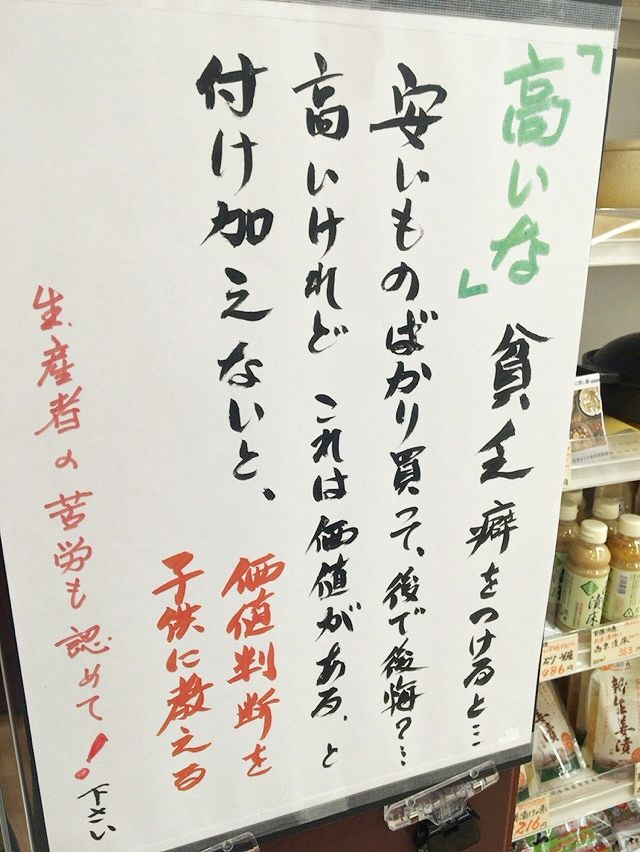 「高いな」貧乏癖をつけると…
安いものばかり買って、後で後悔?…
高いけれど これは価値がある、と
付け加えないと、
価値判断を
子供に教える
生産者の苦労も認めて!下さい
漬床
486円
363円
216円